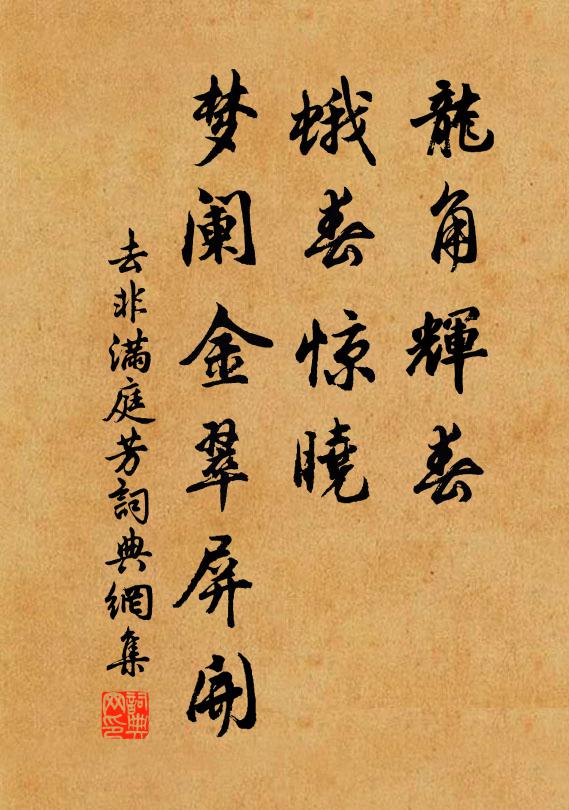 龍角輝春
蛾春惊曉
梦阑金翠屏開
去非满庭芳詞典網集
詞典网印